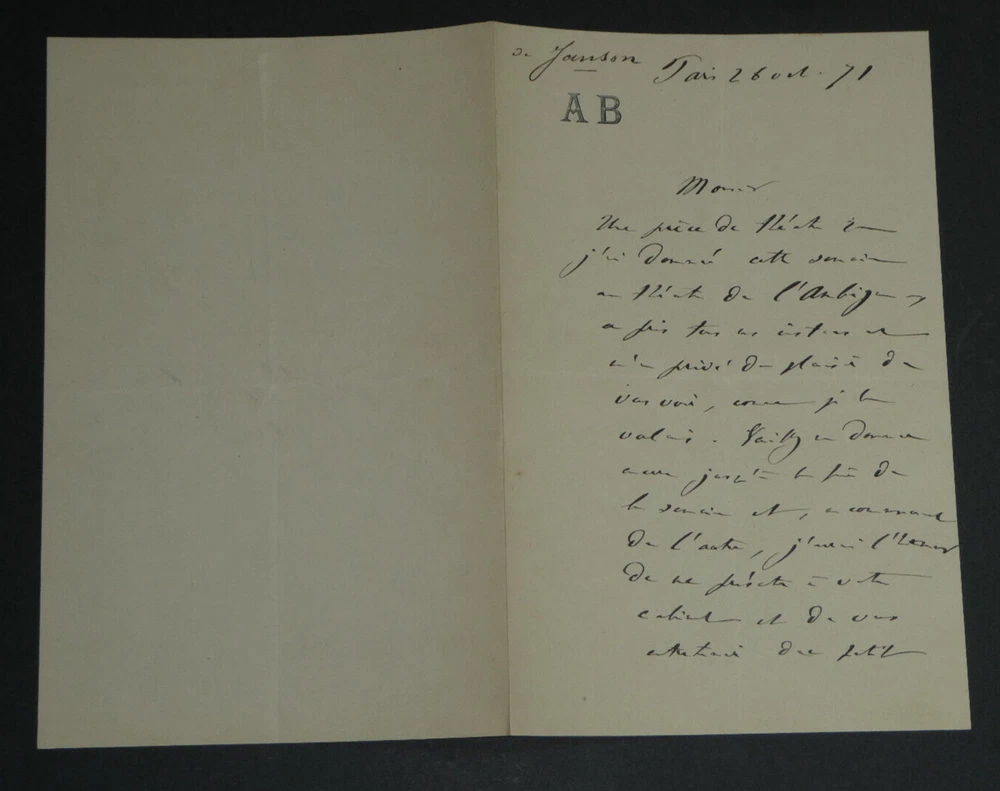 de Janson Paris 26 oct. 71
AB
Monsieur
Une pièce de théâtre que
j'ai donnée cette semaine
au théâtre de l'Ambigu
a pris tous mes instants et
m'a privé du plaisir de
vous voir, comme je le
voulais. Veuillez m'en donner
encore jusqu'à la fin de
la semaine et, au commencement
de l'autre, j'aurai l'honneur
de me présenter à votre
cabinet et de vous
entretenir du petit